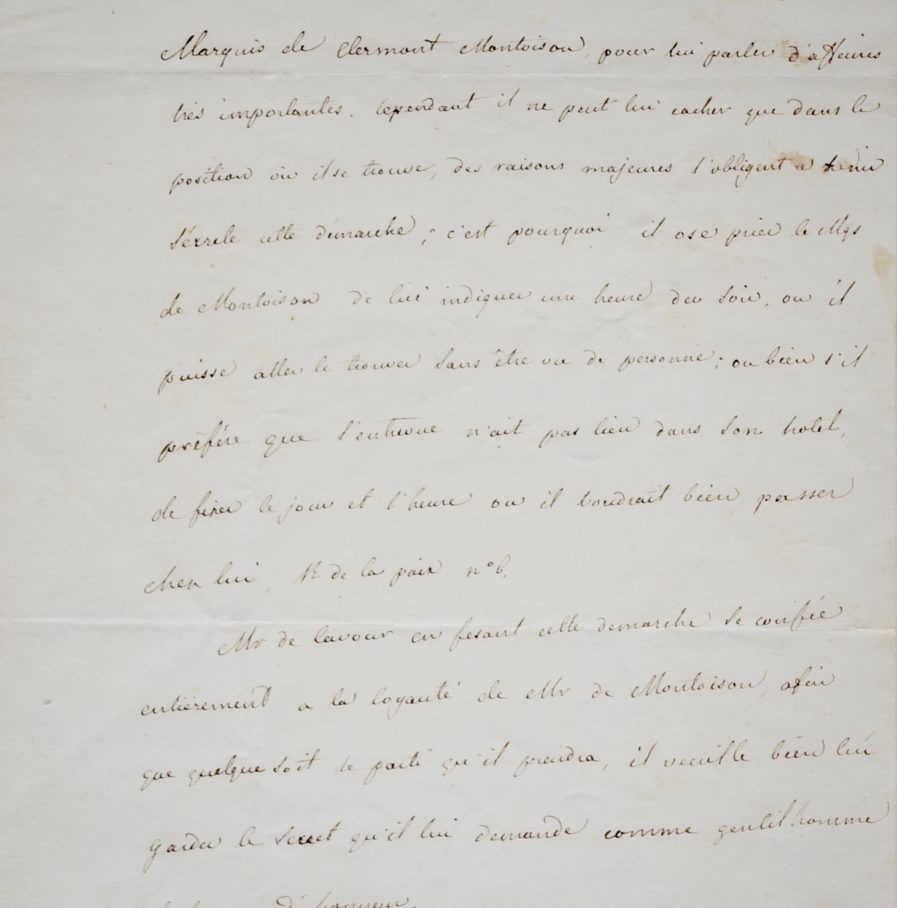 Marquis de Clermont Montoison, pour lui parler d'affaires
très importantes. Cependant il ne peut lui cacher que dans la
position où il se trouve, des raisons majeures l'obligent a tenir
sécrete cette demarche, c'est pourquoi il ose prier le Mqs
de Montoison de lui indiquer une heure du soir, ou il
puisse aller le trouver sans être vu de personne; ou bien s'il
préfére que l'entrevue n'ait pas lieu dans son hotel,
de fixer le jour et l'heure ou il voudrait bien passer
chez lui, R. de la paix n° 6.
Mr de Cavour en fesant cette demarche se confie
entièrement a la loyauté de Mr de Montoison, afin
que quelque soit le parti qu'il prendra, il veuille bien lui
garder le secret qu'il lui demande comme gentilhomme
d'honneur.